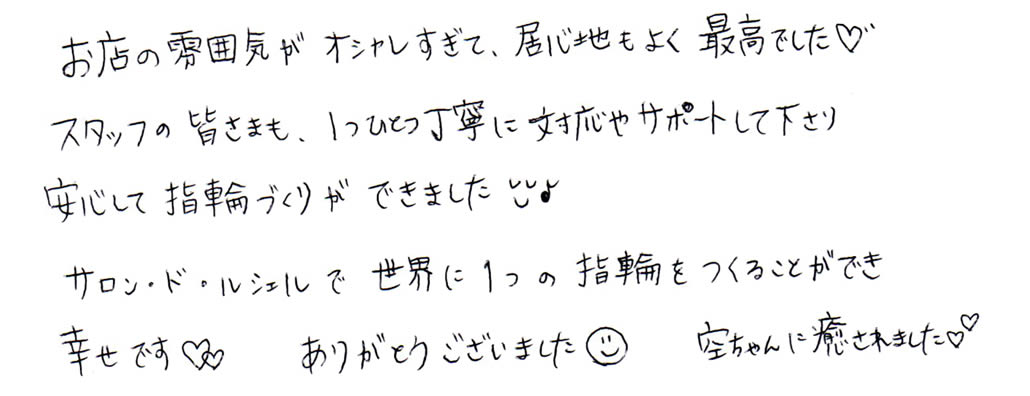 お店の雰囲気が オシャレすぎて、居心地もよく 最高でした♡
スタッフの 皆さまも、1つひとつ丁寧に 対応やサポートして下さり
安心して 指輪づくりが できました ♪
サロン・ド・ルシェルで 世界に1つの 指輪を つくることができ
幸せです♡♡ ありがとうございました☺ 空ちゃんに癒されました♡♡